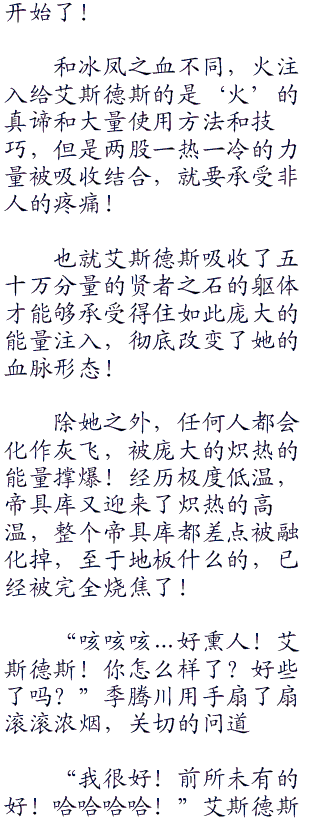 开始了！
和冰凤之血不同，火注
入给艾斯德斯的是‘火’的
真谛和大量使用方法和技
巧，但是两股一热一冷的力
量被吸收结合，就要承受非
人的疼痛！
也就艾斯德斯吸收了五
十万分量的贤者之石的躯体
才能够承受得住如此庞大的
能量注入，彻底改变了她的
血脉形态！
除她之外，任何人都会
化作灰飞，被庞大的炽热的
能量撑爆！经历极度低温，
帝具库又迎来了炽热的高
温，整个帝具库都差点被融
化掉，至于地板什么的，已
经被完全烧焦了！
“咳咳咳…好熏人！艾
斯德斯！你怎么样了？好些
了吗？”季腾川用手扇了扇
滚滚浓烟，关切的问道
“我很好！前所未有的
好！哈哈哈哈！”艾斯德斯